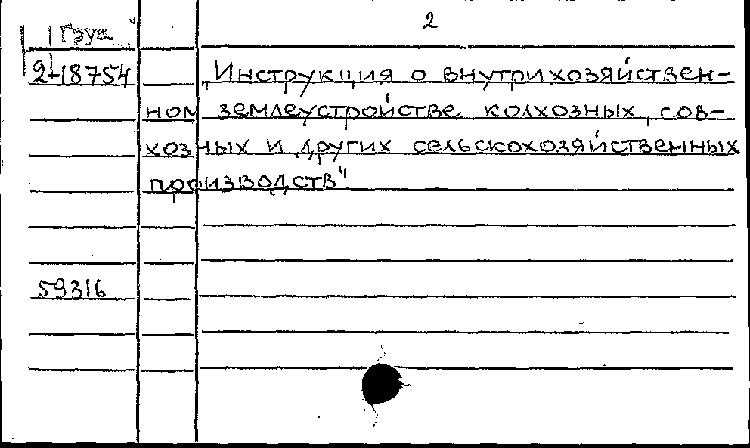 2
Груз
2-18754 „Инструкция о внутрихозяйствен-
ном землеустройстве колхозных, сов-
хозных и других сельскохозяйственных
производств"
59316